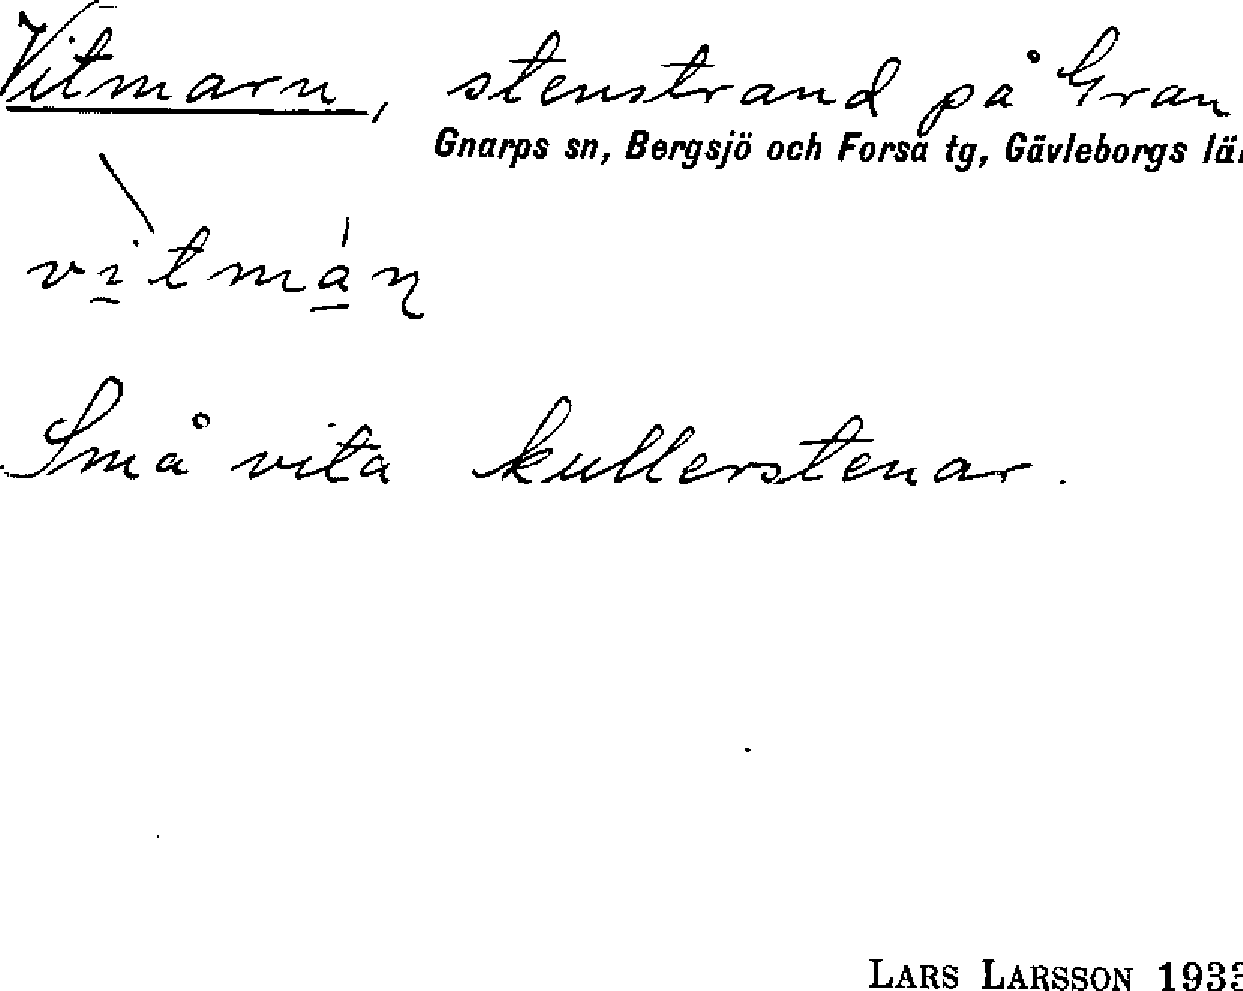 Vitmarn, stenstrand på Gran
Gnarps sn, Bergsjö och Forsa tg, Gävleborgs lä
vi̱tmá̱ɳ
Små vita kullerstenar.
LARS LARSSON 193